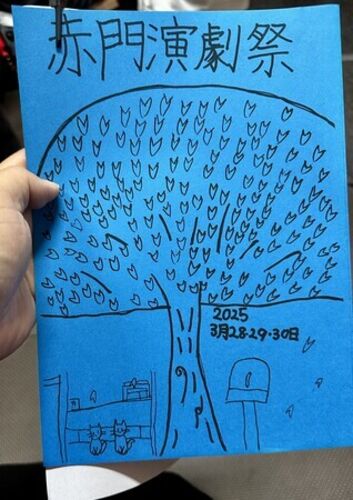 赤門演劇祭
2025
3月28·29·30日